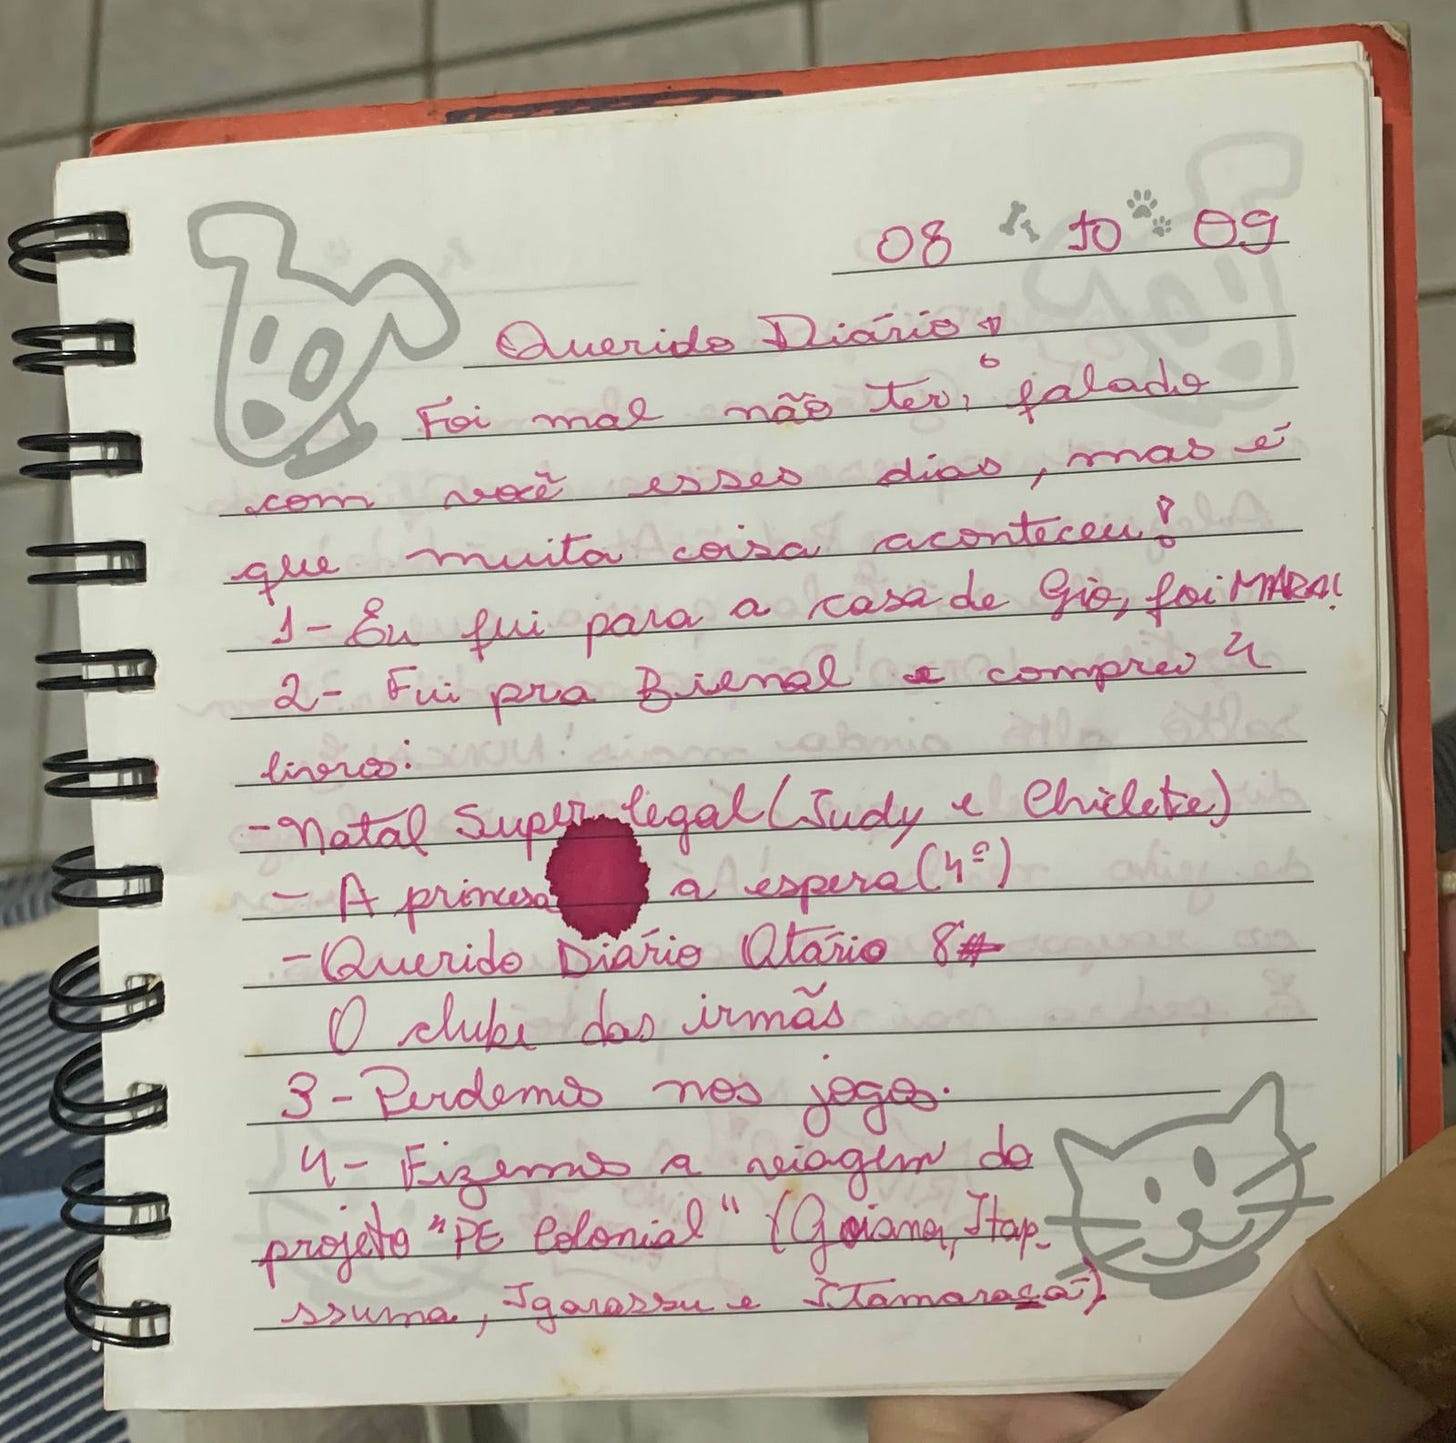 08 10 09
Querido Diário!
Foi mal não ter falado
com você esses dias, mas é
que muita coisa aconteceu!
1- Eu fui para a casa de Gio, foi MARA!
2- Fui pra Bienal e comprei 4
livros:
- Natal Super legal (Judy e Chiclete)
- A princesa a espera (4º)
- Querido Diário Otário 8
O clube das irmãs
3- Perdemos nos jogos.
4- Fizemos a viagem do
projeto "PE Colonial" (Goiana, Itap-
ssuma, Igarassu e Itamaracá)